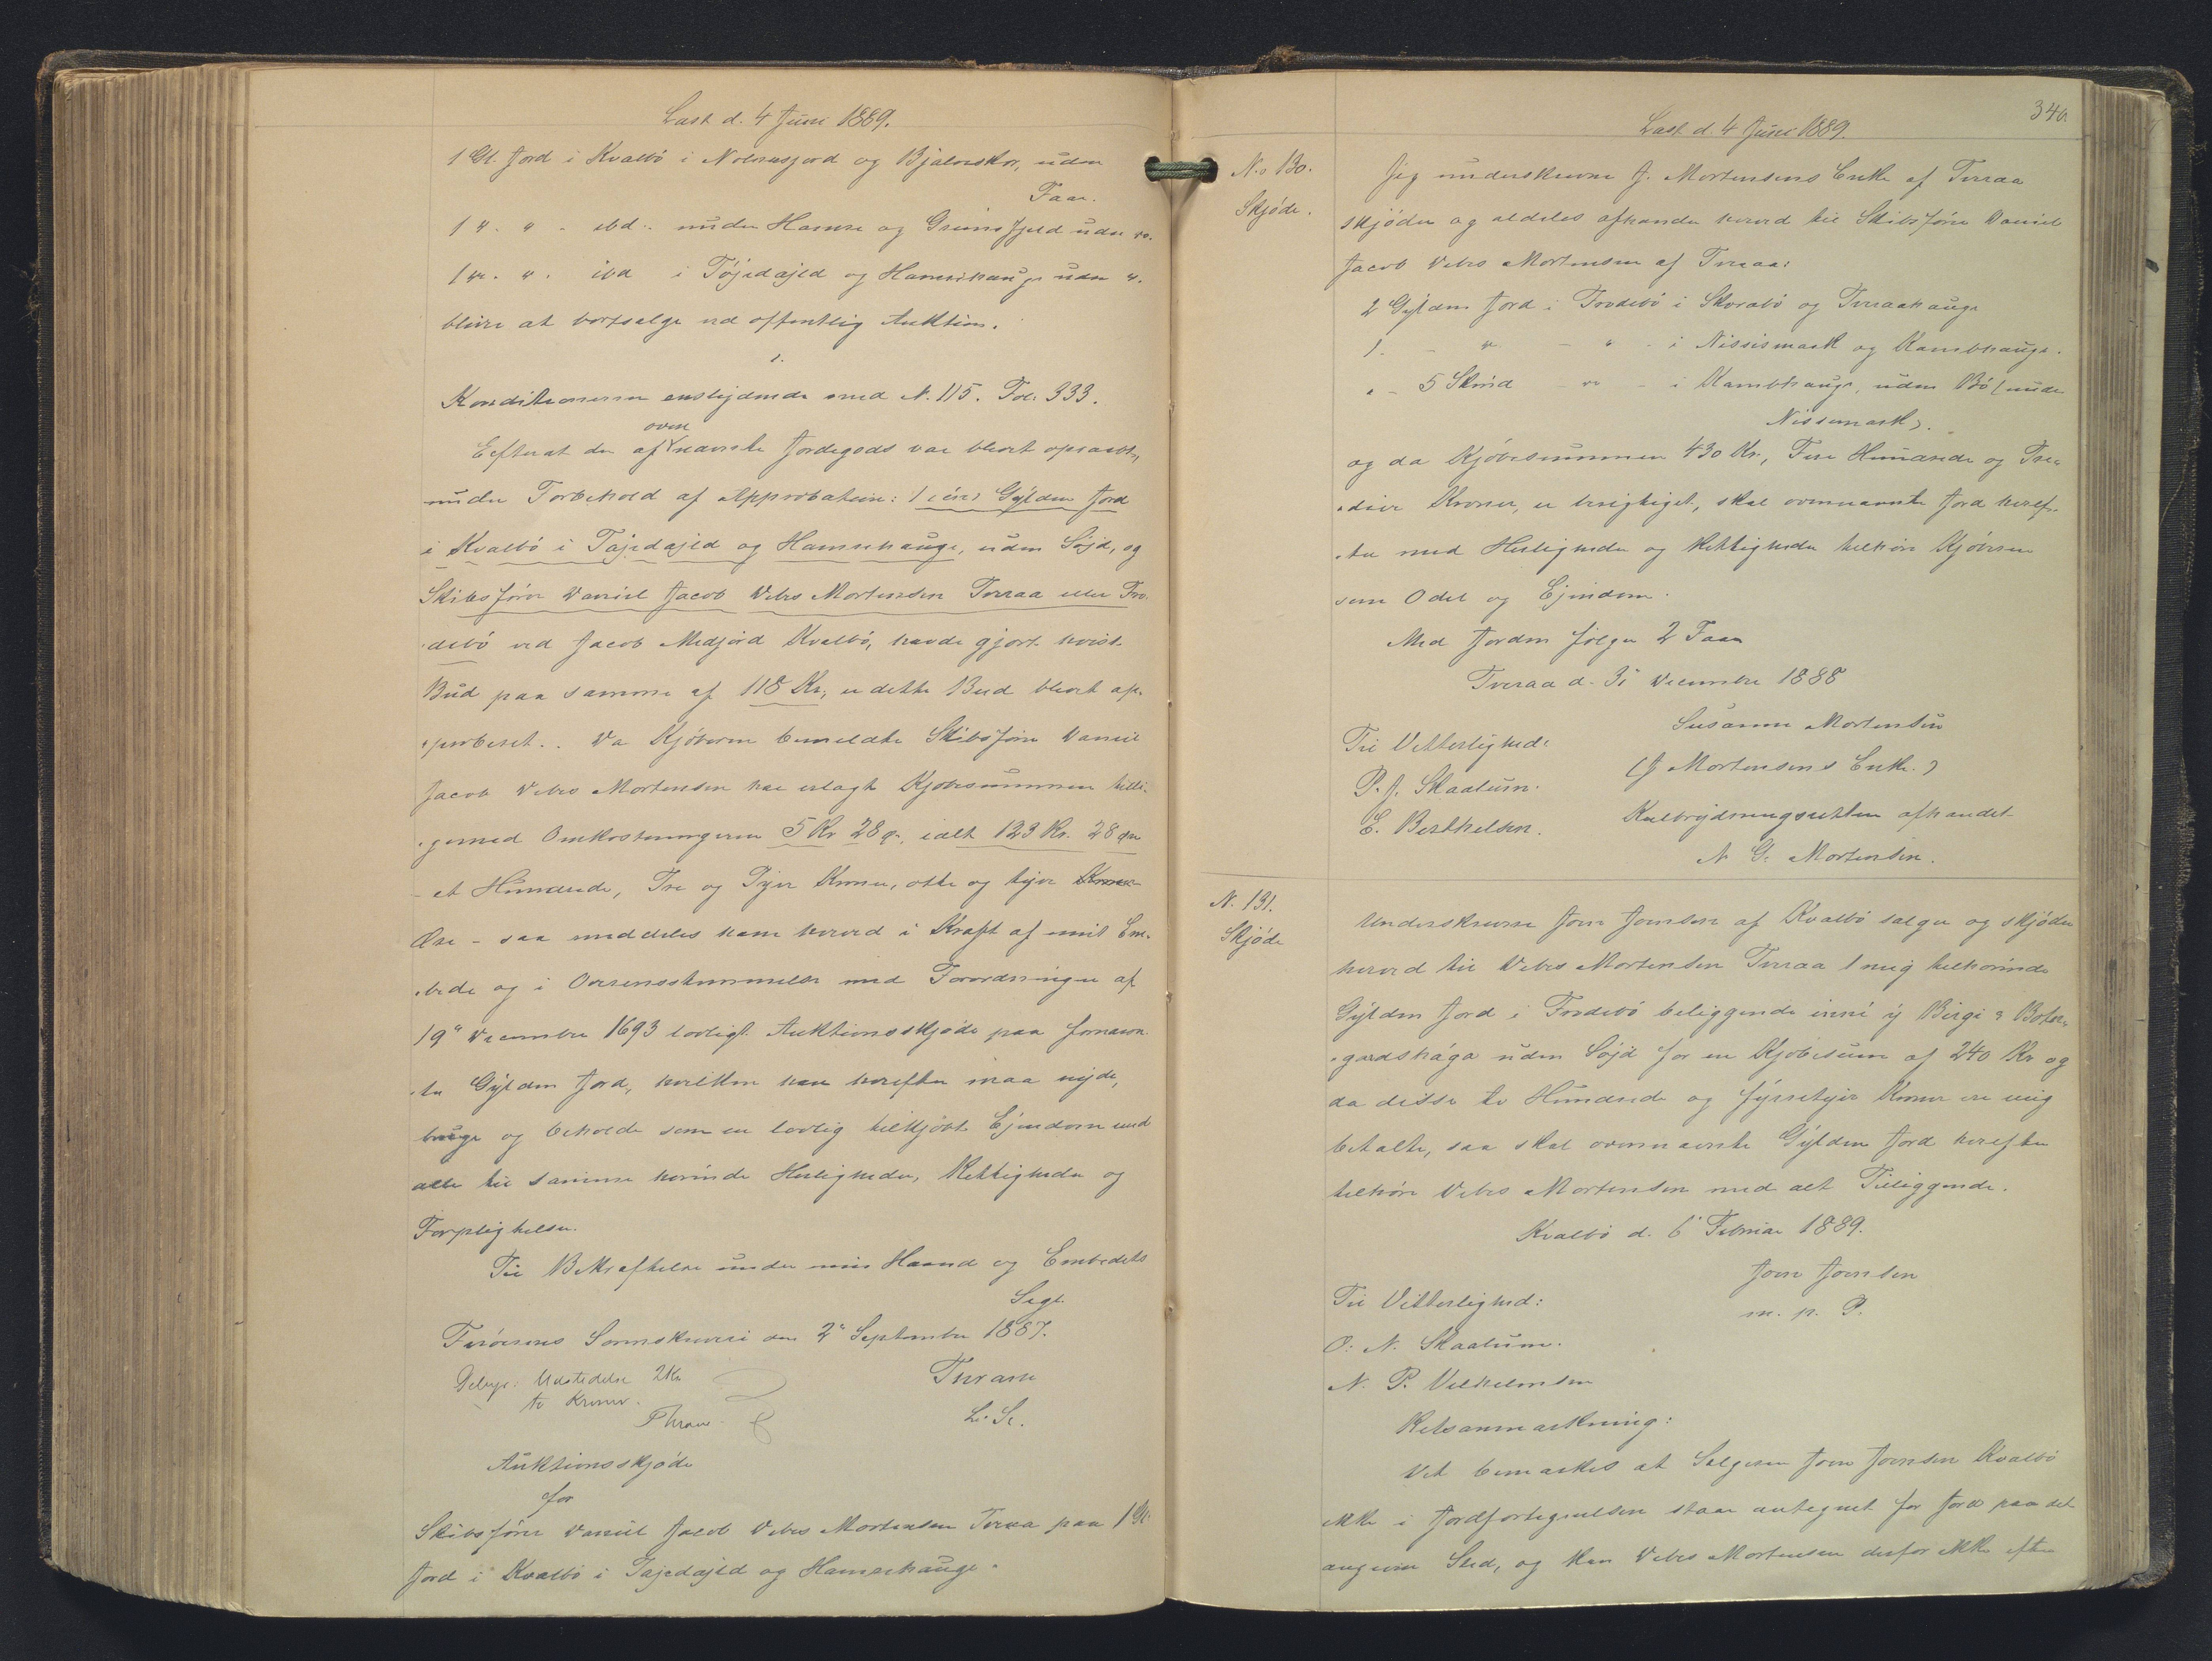 Læst d. 4 Juni 1889.
1 Gl. Jord i Kvalbö i Nolsusjord og Bjalmskor, uden
Faar.
1 " " - ibd. - under Hamre og Grimsfjeld uden "
1 " " ibd i Töjedajld og Hamrehauge uden "
bliver at bortsælge ved offentlig Auktion.
2.
Konditionerne enslydende med N. 115. Fol. 333.
Efterat der af ovennævnte Jordegods var blevet opraabt,
under Forbehold af Approbation: 1 (én) Gylden Jord
i Kvalbö i Tajedajld og Hamrehauge, uden Söjd, og
Skibsförer Daniel Jacob Debes Mortensen Tveraa eller Fro-
debö ved Jacob Midjord Kvalbö, havde gjort höist
Bud paa samme af 118 Kr, er dette Bud blevet ap-
proberet. Da Kjöberen bemeldte Skibsförer Daniel
Jacob Debes Mortensen har erlagt Kjøbesummen tilli-
gemed Omkostningerne 5 Kr 28 ø, ialt 123 Kr. 28 øre
- et Hundrede, Tre og Tyve Kroner, otte og tyve Kroner
Øre - saa meddeles ham herved i Kraft af mit Em-
bede og i Overensstemmelse med Forordningen af
19" December 1693 lovligt Auktionsskjøde paa fornævn-
te Gylden Jord, hvilken han herefter maa nyde,
bruge og beholde som en lovlig tilkjöbt Ejendom med
alle til samme hörende Herligheder, Rettigheder og
Forpligtelser.
Til Bekræftelse under min Haand og Embedets
Segl.
Færöernes Sorenskriveri den 2" September 1887.
Gebyr: Udstedelse 2 Kr Thrane
to Kroner. L. S.
Thrane.
Auktionsskjøde
for
Skibsförer Daniel Jacob Debes Mortensen Tveraa paa 1 Gl.
Jord i Kvalbö i Tajedajld og Hamrehauge.
340.
Læst d. 4 Juni 1889.
N.o 130.
Skjöde.
Jeg underskrevne J. Mortensens Enke af Tveraa
skjöder og aldeles afhænder herved til Skibsförer Daniel
Jacob Debes Mortensen af Tveraa:
2 Gylden Jord i Frodebö i Skorabö og Tveraahauge
1. - " - " - i Nissismark og Kambhauge.
" - 5 Skind - " - i Kambhauge, uden Bö (under
Nissemark).
og da Kjöbesummen 430 Kr., Fire Hundrede og Tre-
dive Kroner, er berigtiget, skal ovennævnte Jord heref-
ter med Herligheder og Rettigheder tilhöre Kjöberen
som Odel og Ejendom.
Med Jorden fölger 2 Faar
Tveraa d. 31 December 1888
Susanne Mortensen
Til Vitterlighed:
(J Mortensens Enke.)
P. J. Skaalum.
E. Berthelsen.
Kulbrydningsretten afhændet
N G. Mortensen.
N. 131.
Skjöde
Underskrevne Joen Joensen af Kvalbö sælger og skjöder
herved til Debes Mortensen Tveraa 1 mig tilhörende
Gylden Jord i Frodebö beliggende inní ý Birgi & Botn-
gardshága uden Söjd for en Kjöbesum af 240 Kr og
da disse to Hundrede og fyrretyve Kroner ere mig
betalte, saa skal ovennævnte Gylden Jord herefter
tilhöre Debes Mortensen med alt Tilliggende.
Kvalbö d. 6" Februar 1889.
Joen Joensen
m. p. P.
Til Vitterlighed:
O. N. Skaalum.
N. P. Vilhelmsen
Retsanmærkning:
Det bemærkes at Sælgeren Joen Joensen Kvalbö
ikke i Jordfortegnelsen staar antegnet for Jord paa det
angivne Sted, og kan Debes Mortensen derfor ikke efter